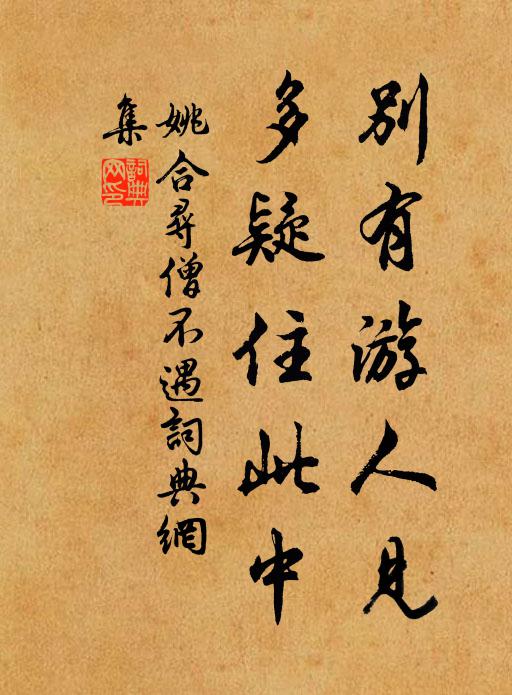 别有游人見
多疑住此中
姚合尋僧不遇詞典網
集
詞典
网印